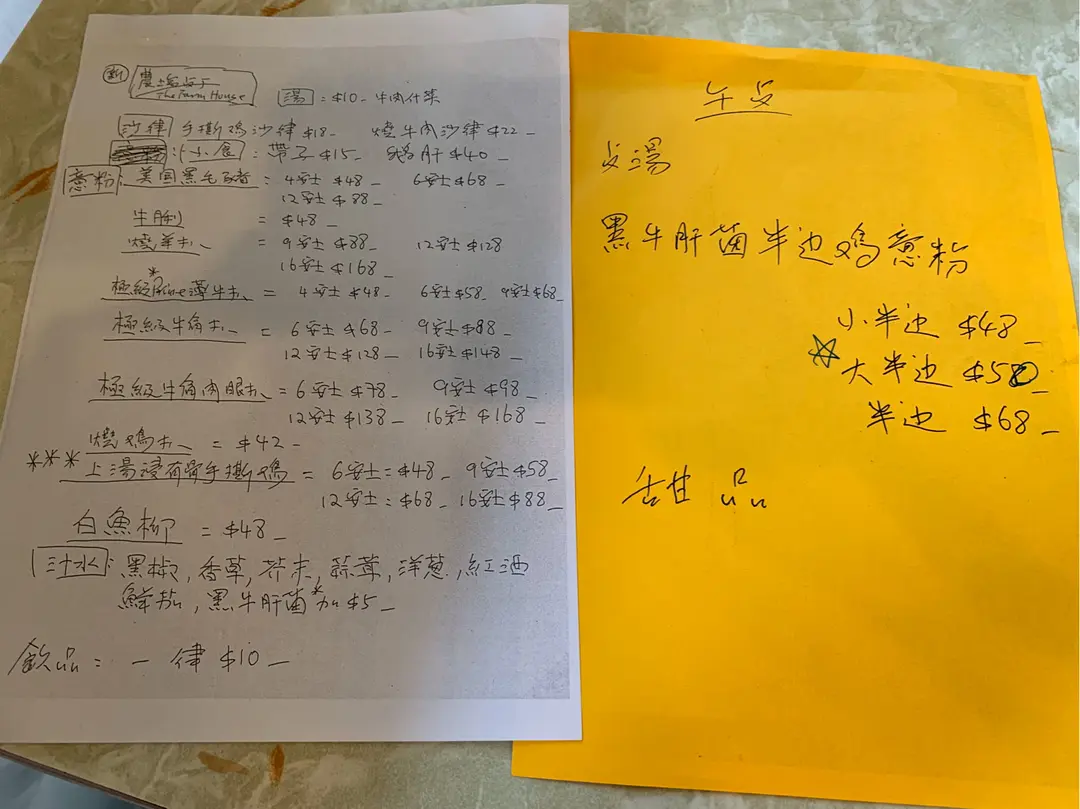 新 農上
The Farm House
湯 : $10 - 牛肉什菜
沙律 手撕鸡沙律 $18 - 燒牛肉沙律 $22 -
小食 : 帶子 $15 - 鵝肝 $40 -
意粉 : 美国黑毛 = 4安士 $48 - 6安士 $68 -
12安士 $88 -
牛脷 = $48 -
燒羊扒 = 9安士 $88 12安士 $128
16安士 $168 -
極級*Prime薄牛扒 = 4安士 $48 - 6安士 $58 - 9安士 $68 -
極級牛扒 = 6安士 $68 - 9安士 $88 -
12安士 $128 - 16安士 $148 -
極級牛肉眼扒 = 6安士 $78 - 9安士 $98 -
12安士 $138 - 16安士 $168 -
燒鸡扒 = $42 -
*** 上湯浸有骨手撕鸡 = 6安士 = $48 - 9安士 $58 -
12安士 = $68 - 16安士 $88 -
白魚柳 = $48 -
汁水 : 黑椒, 香草, 芥末, 蒜茸, 洋葱, 紅酒
鮮茄, 黑牛肝菌*加 $5 -
飲品 : 一律 $10 -
午
湯
黑牛肝菌半边鸡意粉
小半边 $48 -
☆ 大半边 $50 -
半边 $68 -
甜品